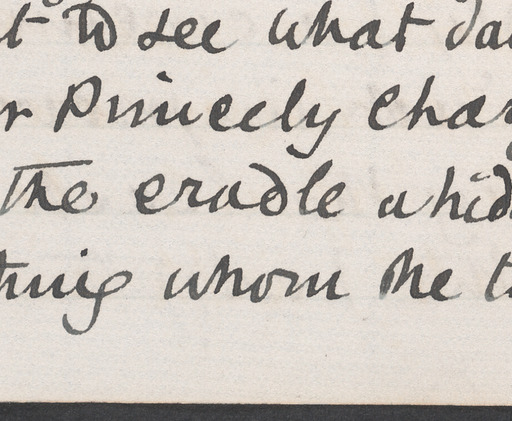 t to see what da
r Princely Char
the cradle which
thing whom she t